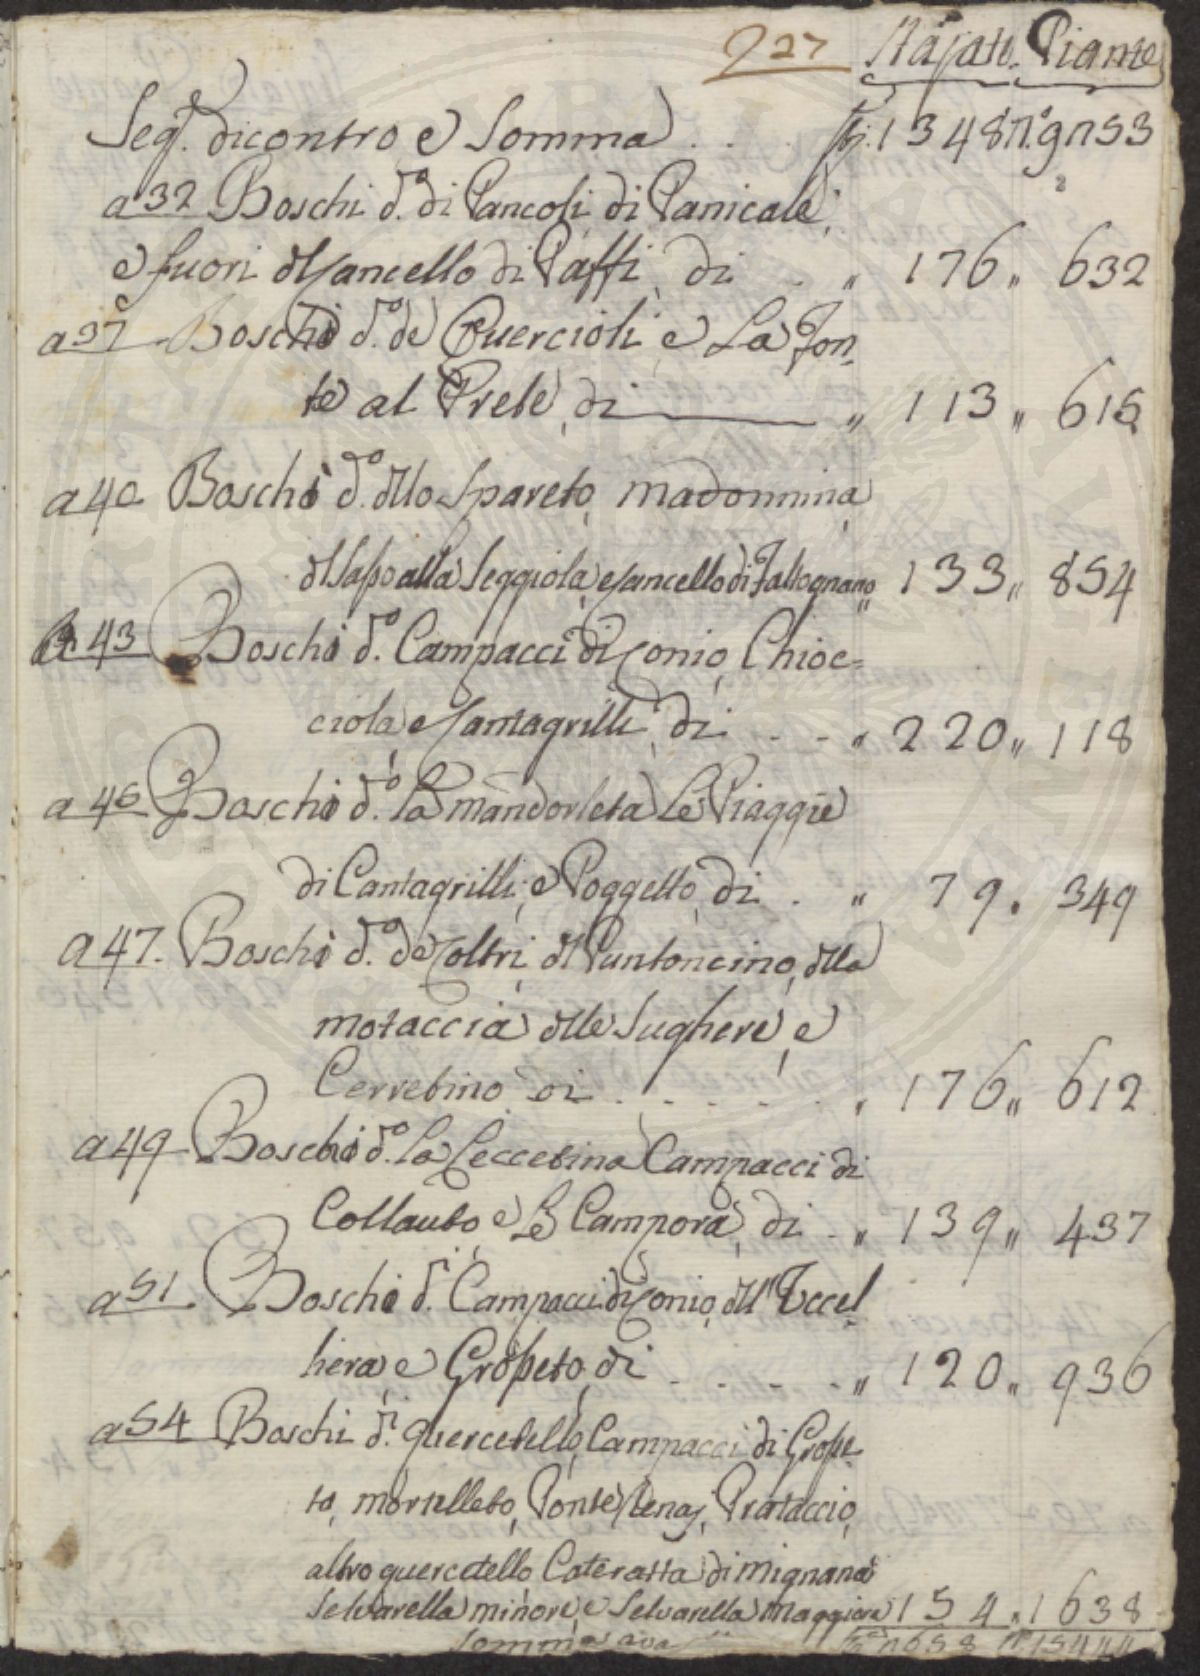 227 Stajate. Piante
Seg.e dicontro e Somma . . . 1348 n.o 9n53
a 32 Boschi d.o di Pancoli, di Panicale,
e fuori dl Cancello di Paffi, di . . " 176 " 632
a 37 Boschi d.o de Quercioli, e La Fon-
te al Prete, di " 113 " 615
a 40 Boschi d.o dllo Spareto, madonnina
dl Sasso alla Seggiola, e Cancello di Faltognano " 133 " 854
a 43 Boschi d.o Campacci di Conio, Chioc=
ciola, e Cantagrilli, di . . " 220 " 118
a 46 Boschi d.o la mandorleta Le Piaggie
di Cantagrilli, e Poggetto, di . " 79 . 349
a 47. Boschi d.o de Coltri, dl Puntoncino, dlla
motaccia dlle Sughere, e
Cerretino di . . . . . . " 176 " 612
a 49 Boschi d.o la Leccetina Campacci di
Collauto e Le Campora, di . " 139 " 437
a 51 Boschi d.i Campacci di Conio, dll'Uccel-
liera, e Gropeto, di . . . . . " 120 " 936
a 54 Boschi d.i quercetello, Campacci di Grope-
to, mortelleto, Ponte, Prataccio,
altro quercetello Cateratta di mignana
Selvarella minore, e Selvarella maggiore 154 " 1638
Somma 15444